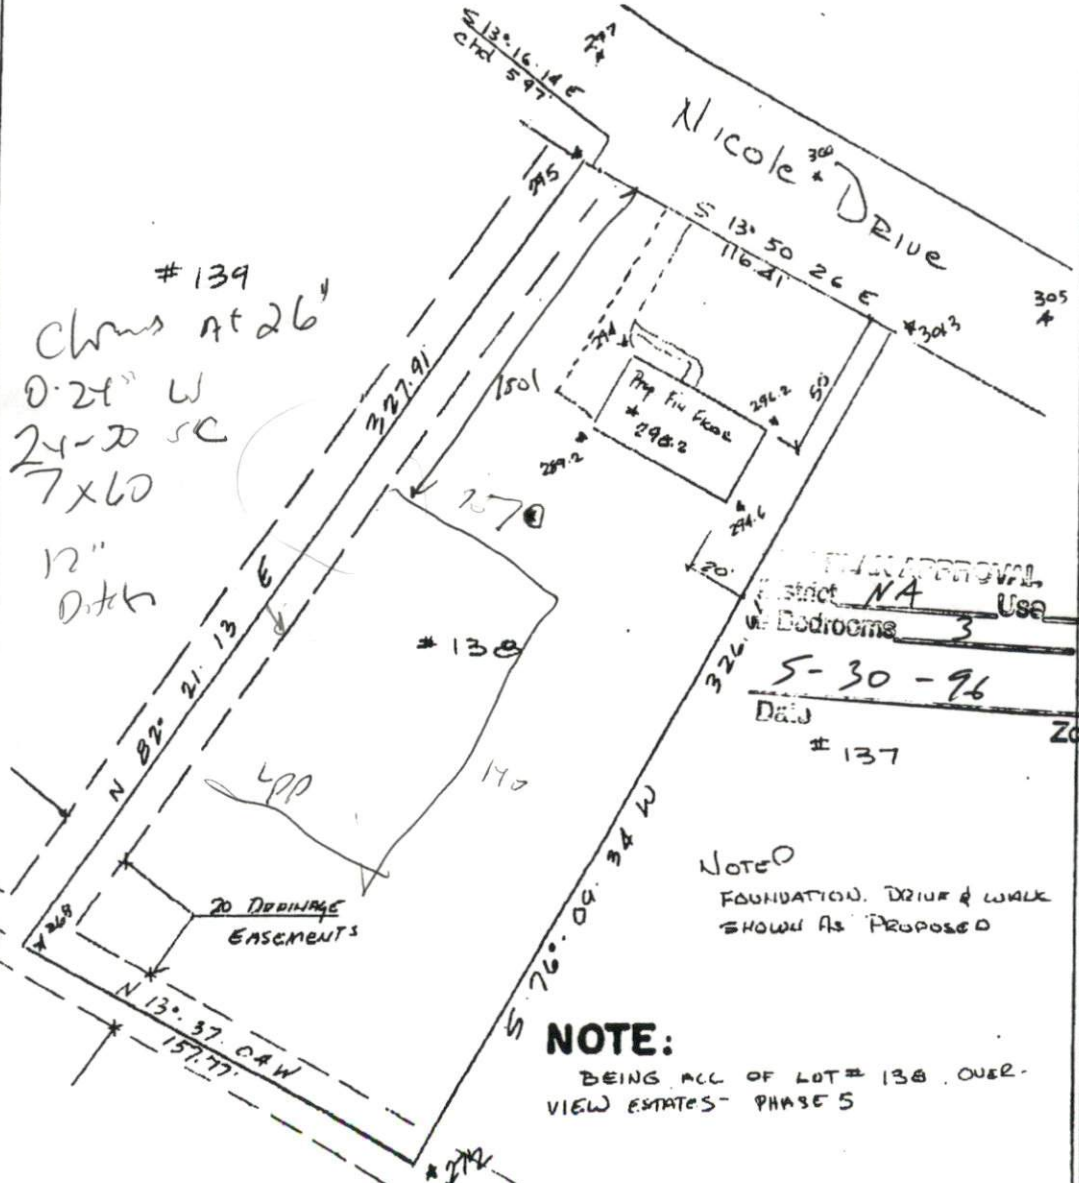 S 13° 16 14 E
chd 5 97'
297
Nicole Drive
300
295
S 13° 50 26 E
116.41
305
# 139
At 26"
0-24" W
7 x 60
12"
Ditch
327.91
150'
294
Prop Fin Floor
298.2
296.2
50'
289.2
294.6
20'
PLAN APPROVAL
District NA Use
Bedrooms 3
5-30-96
Date
# 137
# 138
N 82° 21. 13 E
LPP
140
326.
S 76°. 09. 34 W
NOTE
FOUNDATION. DRIVE & WALK
SHOWN AS PROPOSED
20 DRAINAGE
EASEMENTS
268
N 13°. 37. 04 W
157.77'
NOTE:
BEING ALL OF LOT # 138. OVER-
VIEW ESTATES- PHASE 5